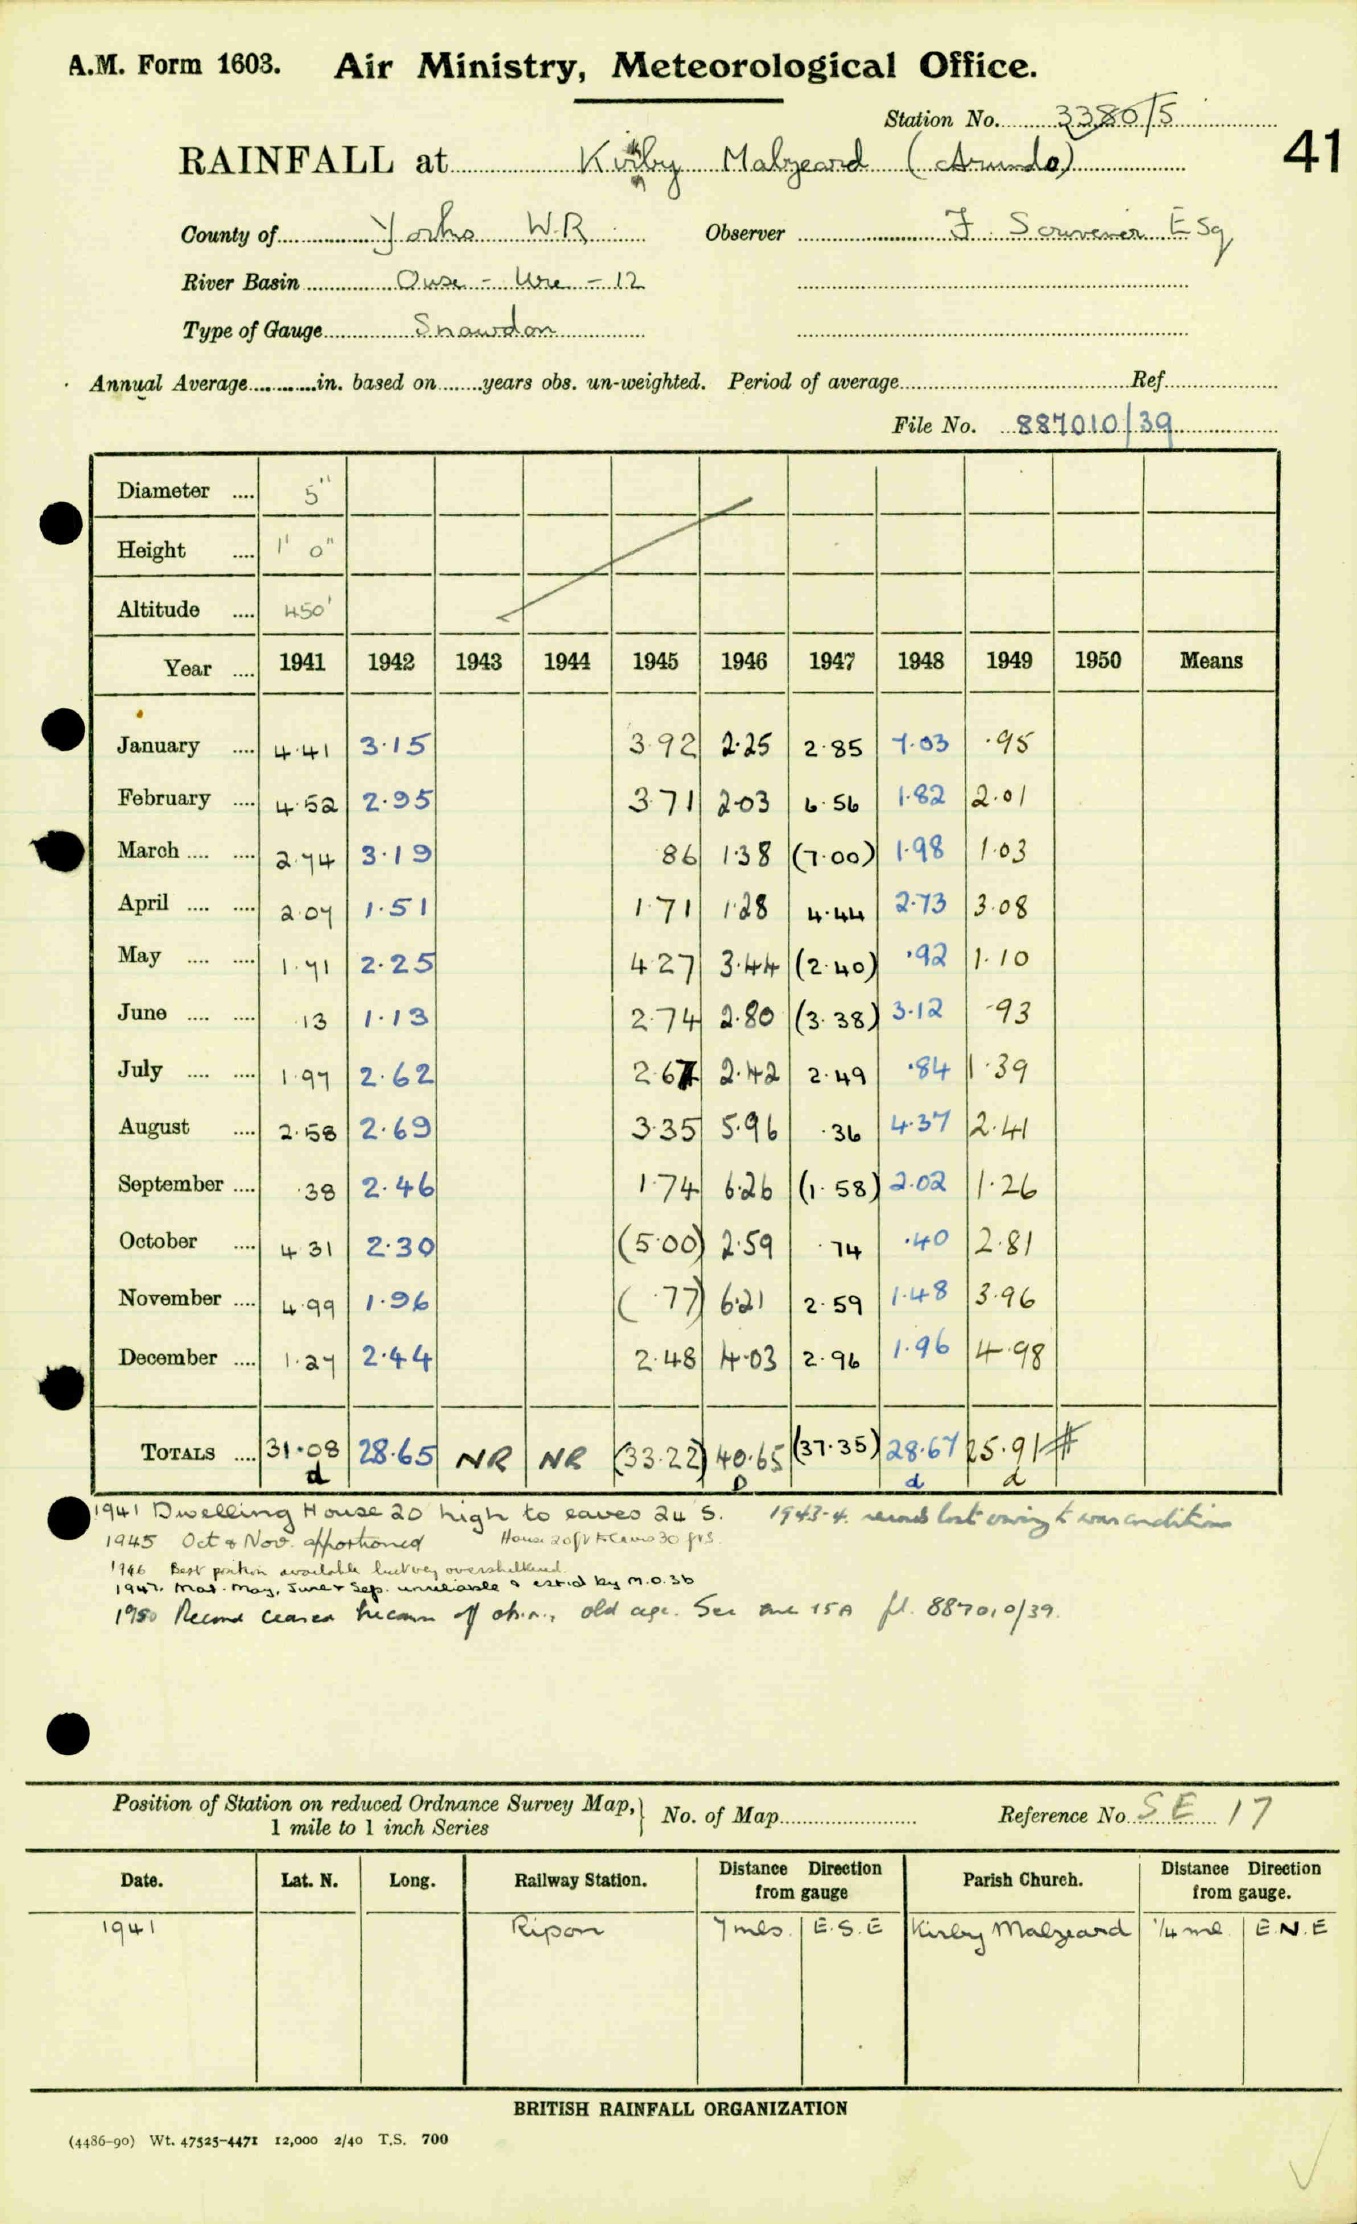 A.M. Form 1603. Air Ministry, Meteorological Office.
Station No. 3380/5
41
RAINFALL at Kirby Malzeard (Arundo)
County of Yorks W.R Observer F. Scrivener Esq
River Basin Ouse - Ure - 12
Type of Gauge Snowdon
Annual Average in. based on years obs. un-weighted. Period of average Ref.
File No. 887010/39
Diameter 5"
Height 1' 0"
Altitude 450'
Year 1941 1942 1943 1944 1945 1946 1947 1948 1949 1950 Means
January 4.41 3.15 3.92 2.25 2.85 7.03 .95
February 4.52 2.95 3.71 2.03 6.56 1.82 2.01
March 2.74 3.19 86 1.38 (7.00) 1.98 1.03
April 2.07 1.51 1.71 1.28 4.44 2.73 3.08
May 1.71 2.25 4.27 3.44 (2.40) .92 1.10
June .13 1.13 2.74 2.80 (3.38) 3.12 .93
July 1.97 2.62 2.67 2.42 2.49 .84 1.39
August 2.58 2.69 3.35 5.96 .36 4.37 2.41
September .38 2.46 1.74 6.26 (1.58) 2.02 1.26
October 4.31 2.30 (5.00) 2.59 .74 .40 2.81
November 4.99 1.96 (.77) 6.21 2.59 1.48 3.96
December 1.27 2.44 2.48 4.03 2.96 1.96 4.98
TOTALS 31.08 28.65 NR NR (33.22) 40.65 (37.35) 28.67 25.91 #
d D d d
1941 Dwelling House 20 high to eaves 24 S. 1943-4. records lost owing to war conditions
1945 Oct & Nov. apportioned House 20ft to Eaves 30 ft S.
1946 Best position available but very oversheltered.
1947. Mar. May, June & Sep. unreliable & estd by M.O.3b
1950 Record ceased because of obsr., old age. See 15A fl. 887010/39.
Position of Station on reduced Ordnance Survey Map, 1 mile to 1 inch Series } No. of Map Reference No. SE 17
Date. Lat. N. Long. Railway Station. Distance Direction from gauge Parish Church. Distance Direction from gauge.
1941 Ripon 7 mls. E.S.E Kirby Malzeard 1/4 ml. E.N.E
BRITISH RAINFALL ORGANIZATION
(4486-90) Wt. 47525-4471 12,000 2/40 T.S. 700